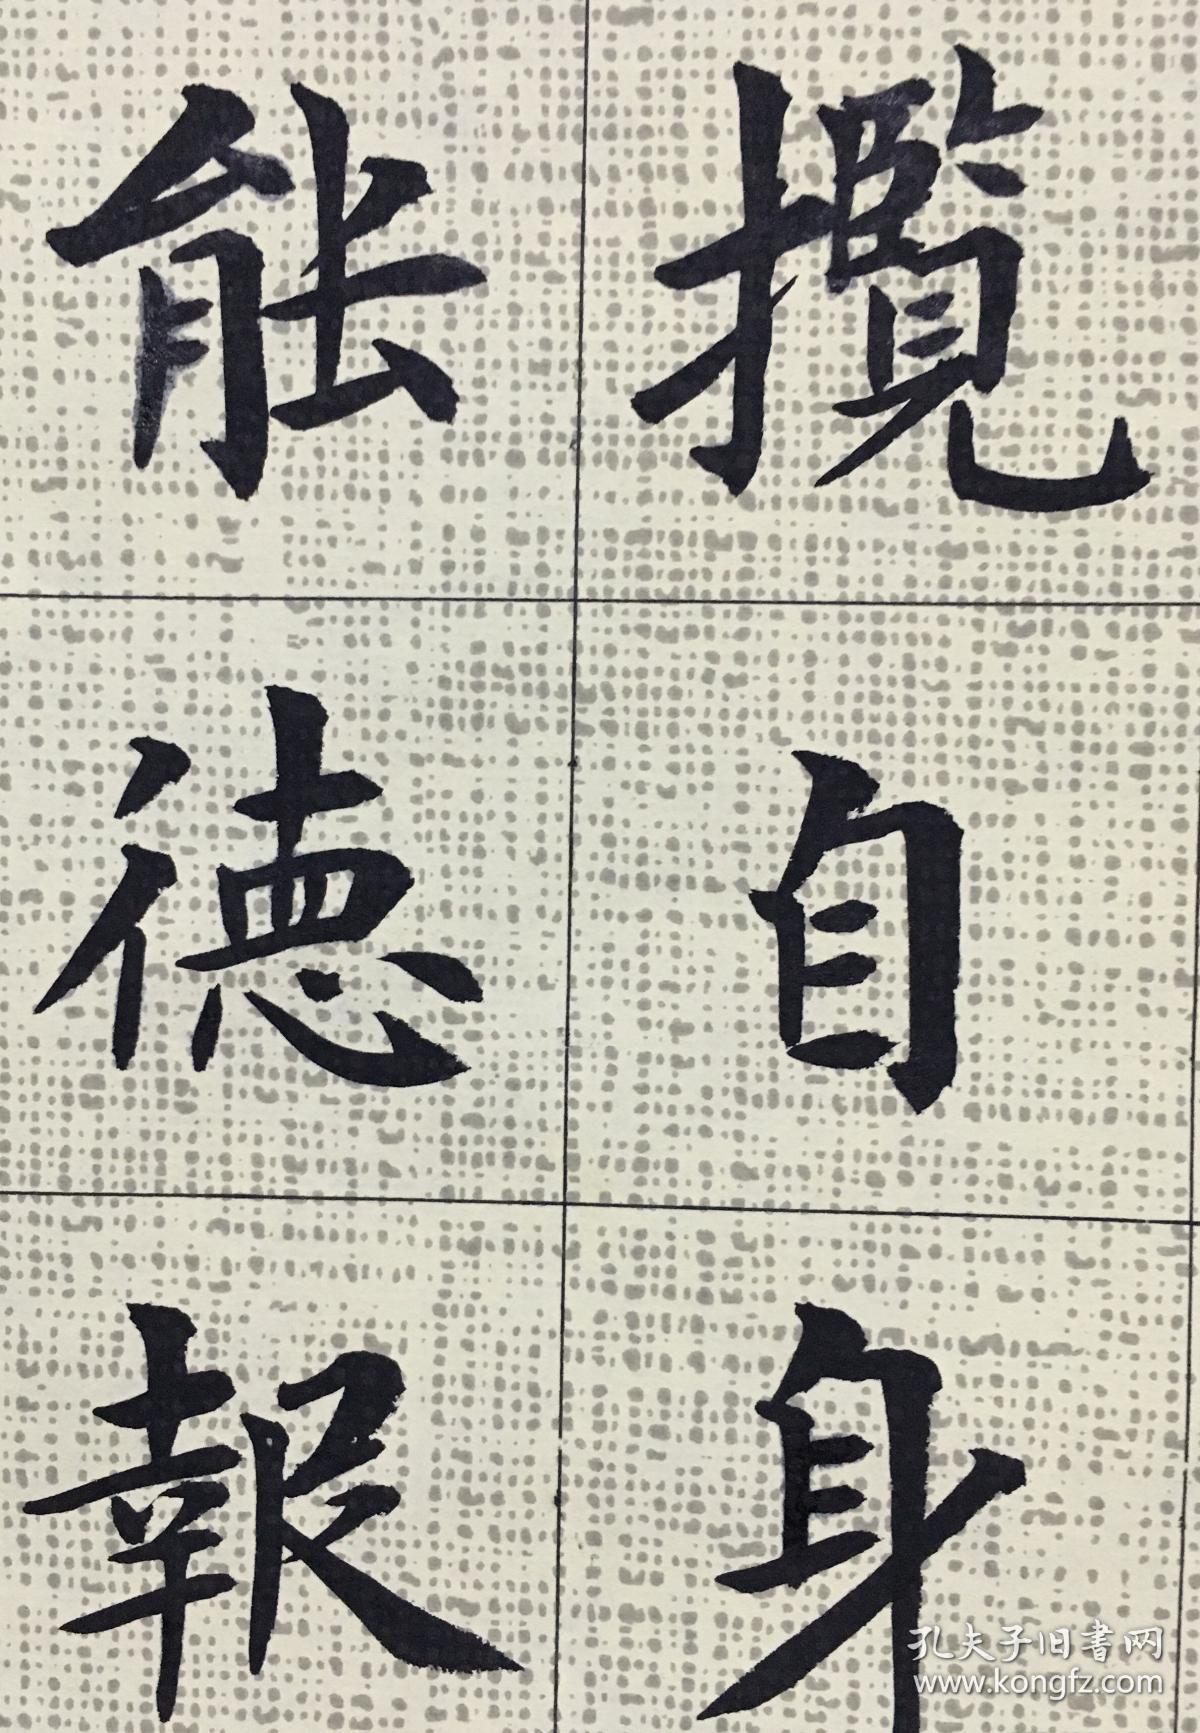 攬自身
能徳報
孔夫子旧書网
www.kongfz.com